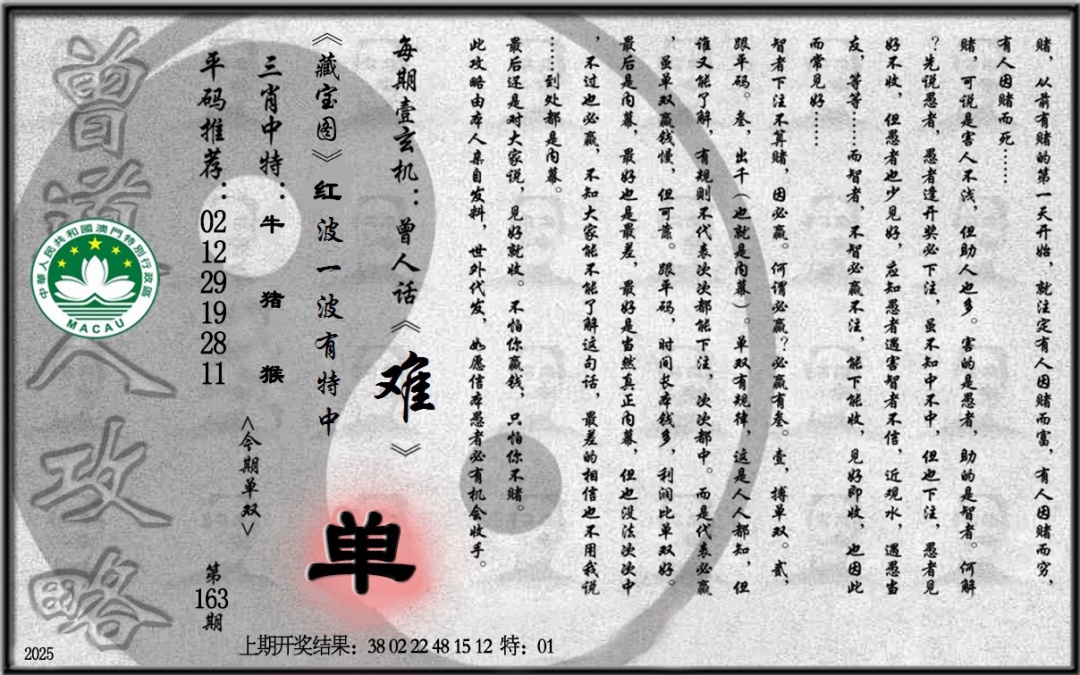 赌，从前有赌的第一天开始，就注定有人因赌而富，有人因赌而穷，
有人因赌而死……
赌，可说是害人不浅，但助人也多。害的是愚者，助的是智者。何解
？先说愚者，愚者逢开奖必下注，虽不知中不中，但也下注，愚者见
好不收，但愚者也少见好，应知愚者遇害智者不信，近观水，遇愚当
友，等等……而智者，不智必赢不注，能下能收，见好即收，也因此
而常见好……
智者下注不算赌，因必赢。何谓必赢？必赢有叁。壹，搏单双。贰，
跟平码。叁，出千（也就是内幕）。单双有规律，这是人人都知，但
谁又能了解，有规则不代表次次都能下注，次次都中。而是代表必赢
，虽单双赢钱慢，但可靠。跟平码，时间长本钱多，利润比单双好。
最后是内幕，最好也是最差，最好是当然真正内幕，但也没法次次中
，不过也必赢，不知大家能不能了解这句话，最差的相信也不用我说
……到处都是内幕。
最后还是对大家说，见好就收。不怕你赢钱，只怕你不赌。
此攻略由本人亲自发料，世外代发，如愿信本愚者必有机会收手。
每期壹玄机：曾人话《难》
《藏宝图》红波一波有特中
三肖中特：牛 猪 猴
平码推荐：02 12 29 19 28 11
<今期单双>
单
第163期
曾道人攻略
中華人民共和國澳門特別行政區
MACAU
上期开奖结果：38 02 22 48 15 12 特：01
2025